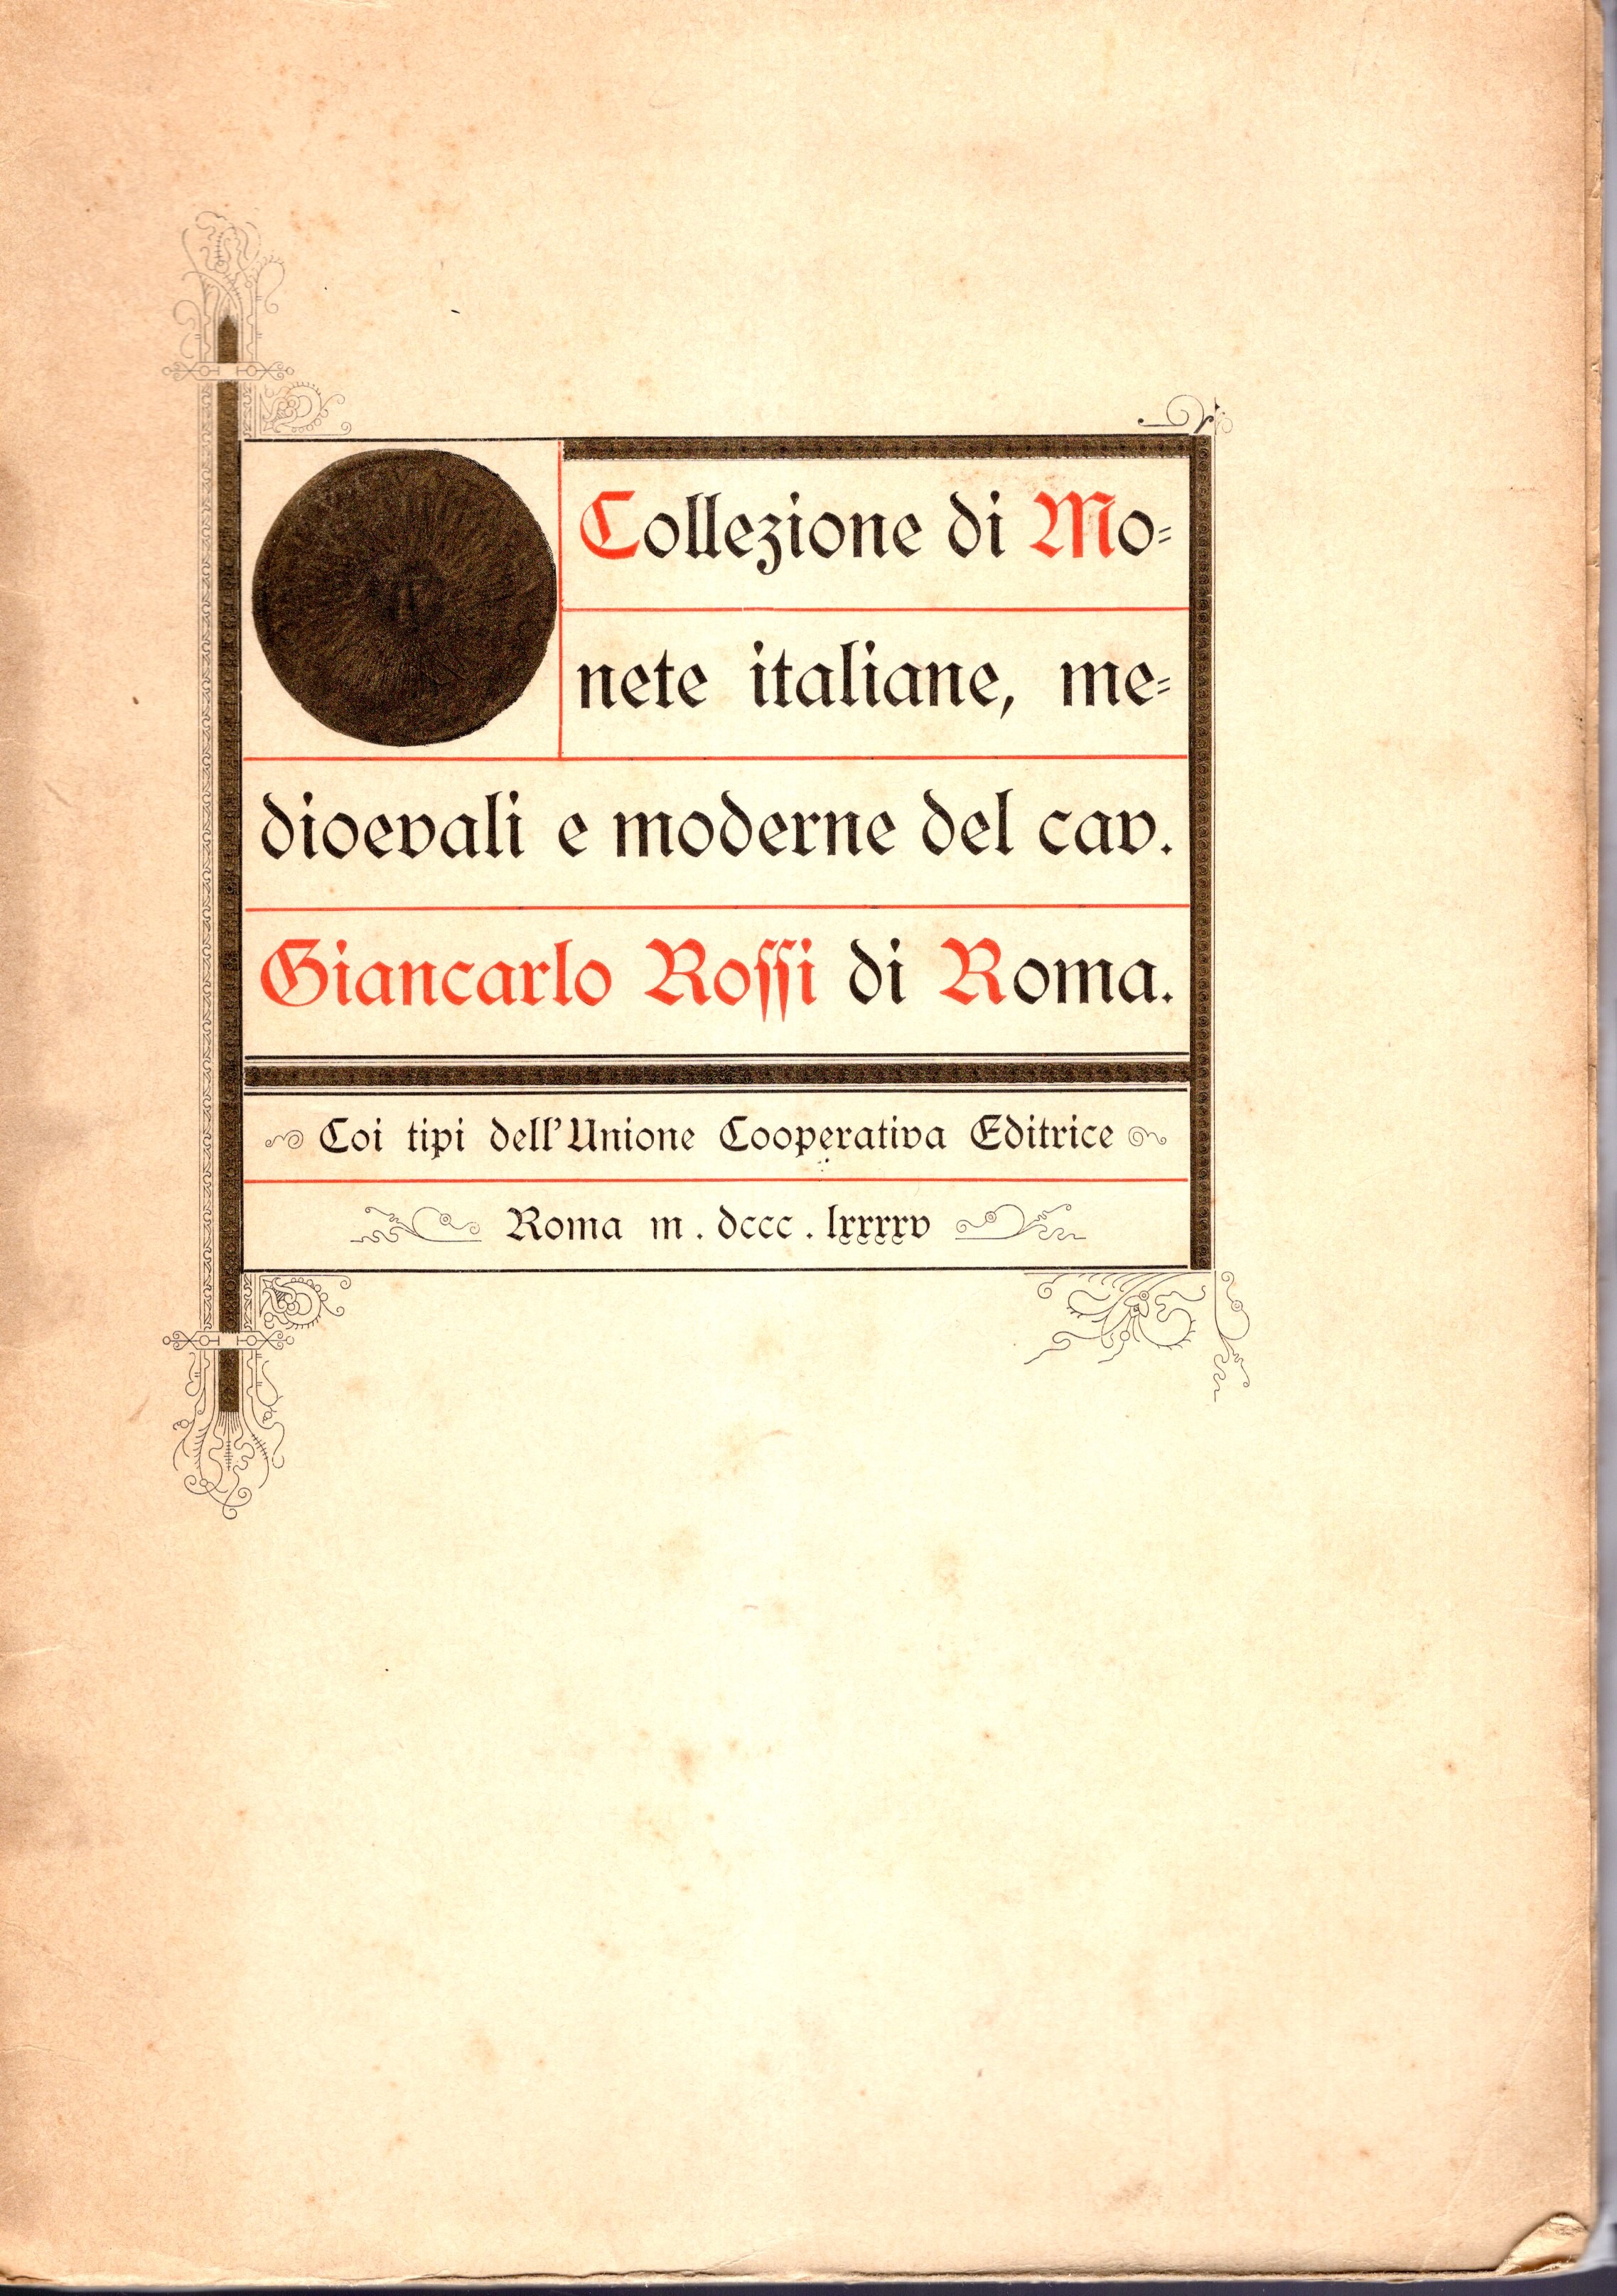 Collezione di Mo=
nete italiane, me=
dioevali e moderne del cav.
Giancarlo Roſſi di Roma.
Coi tipi dell'Unione Cooperativa Editrice
Roma m . dccc . lxxxxv